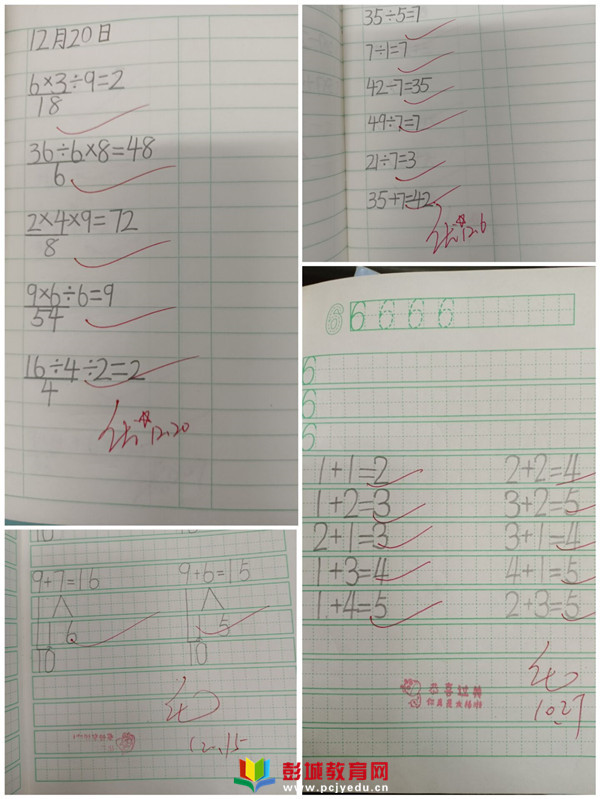 12月20日
6×3÷9=2
18
36÷6×8=48
6
2×4×9=72
8
9×6÷6=9
54
16÷4÷2=2
4
优 12.20
35÷5=7
7÷1=7
42-7=35
49÷7=7
21÷7=3
35+7=42
优 12.6
6 6 6 6 6
6
6
6
1+1=2 2+2=4
1+2=3 3+2=5
2+1=3 3+1=4
1+3=4 4+1=5
1+4=5 2+3=5
优
10.27
10
9+7=16 9+6=15
1 6 1 5
10 10
优
12.15
彭城教育网
www.pcjyedu.cn